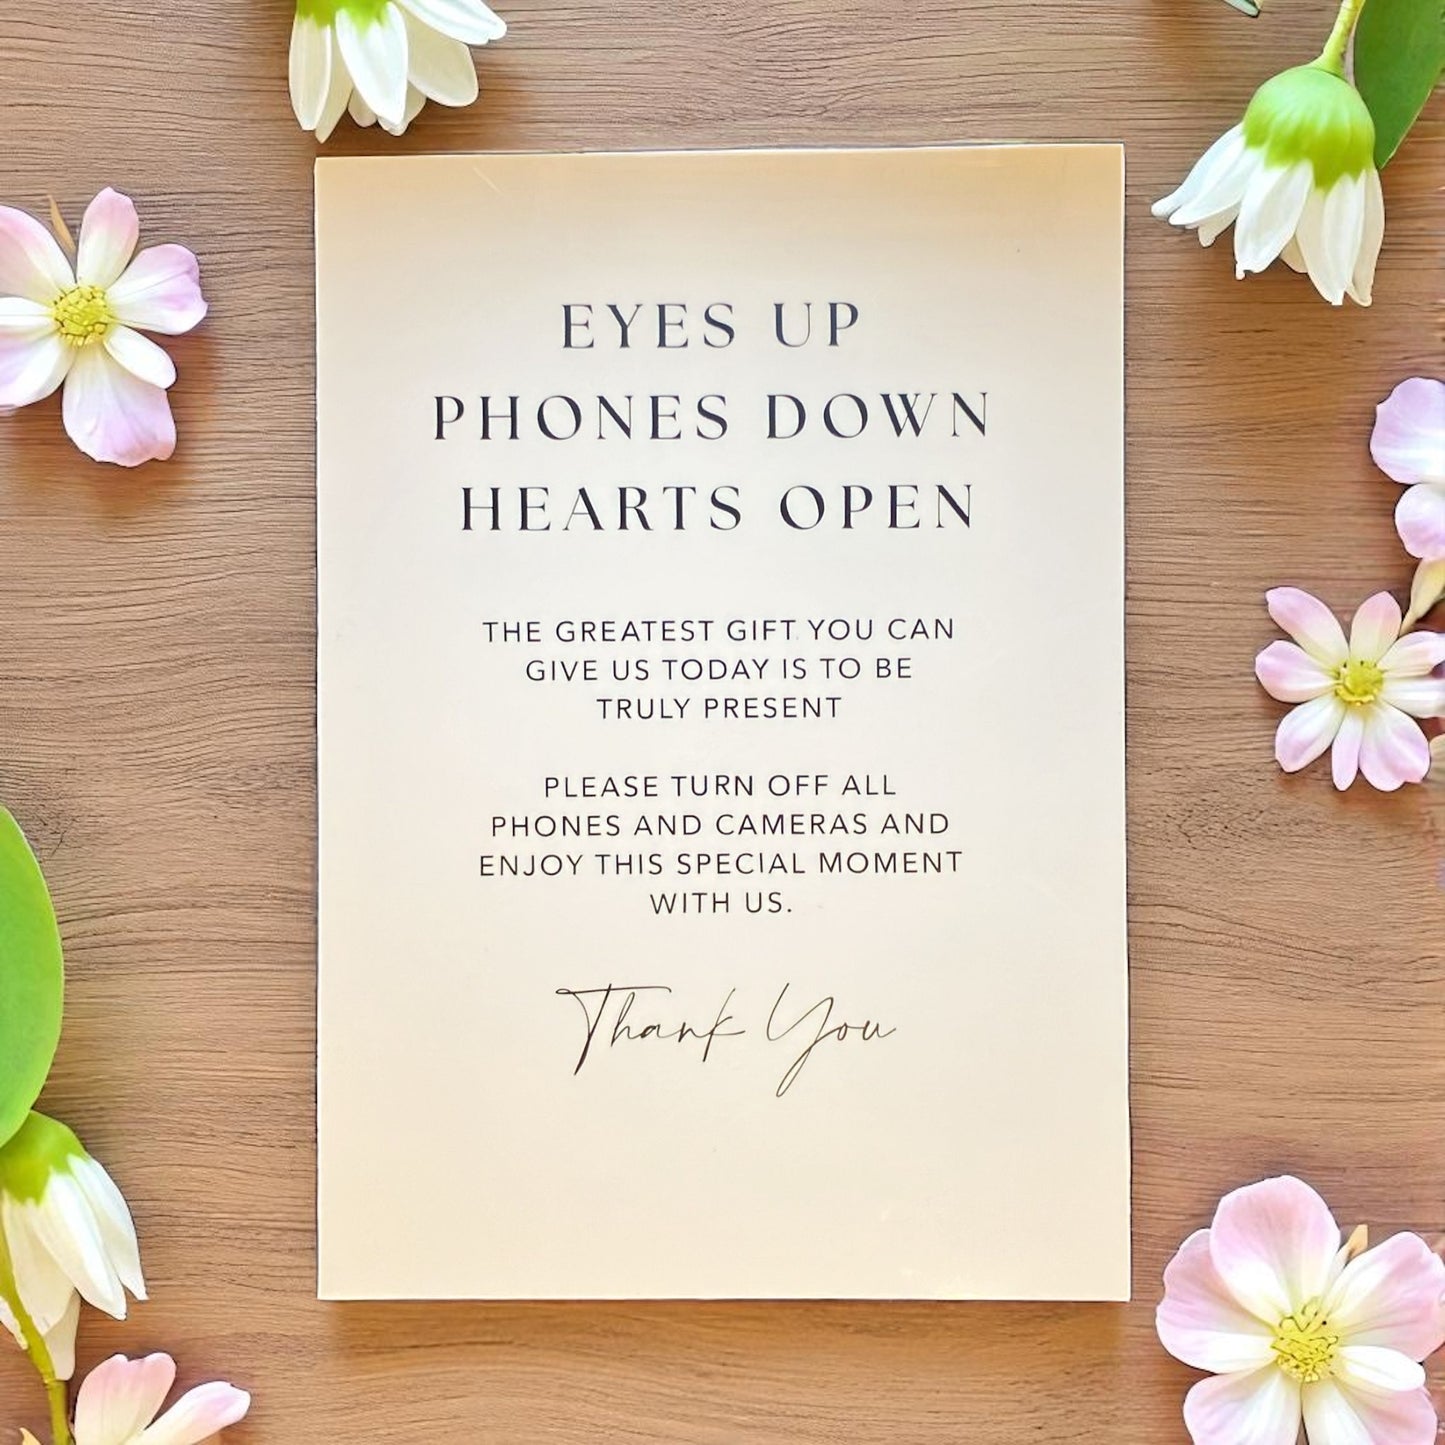 EYES UP
PHONES DOWN
HEARTS OPEN
THE GREATEST GIFT YOU CAN
GIVE US TODAY IS TO BE
TRULY PRESENT
PLEASE TURN OFF ALL
PHONES AND CAMERAS AND
ENJOY THIS SPECIAL MOMENT
WITH US.
Thank You